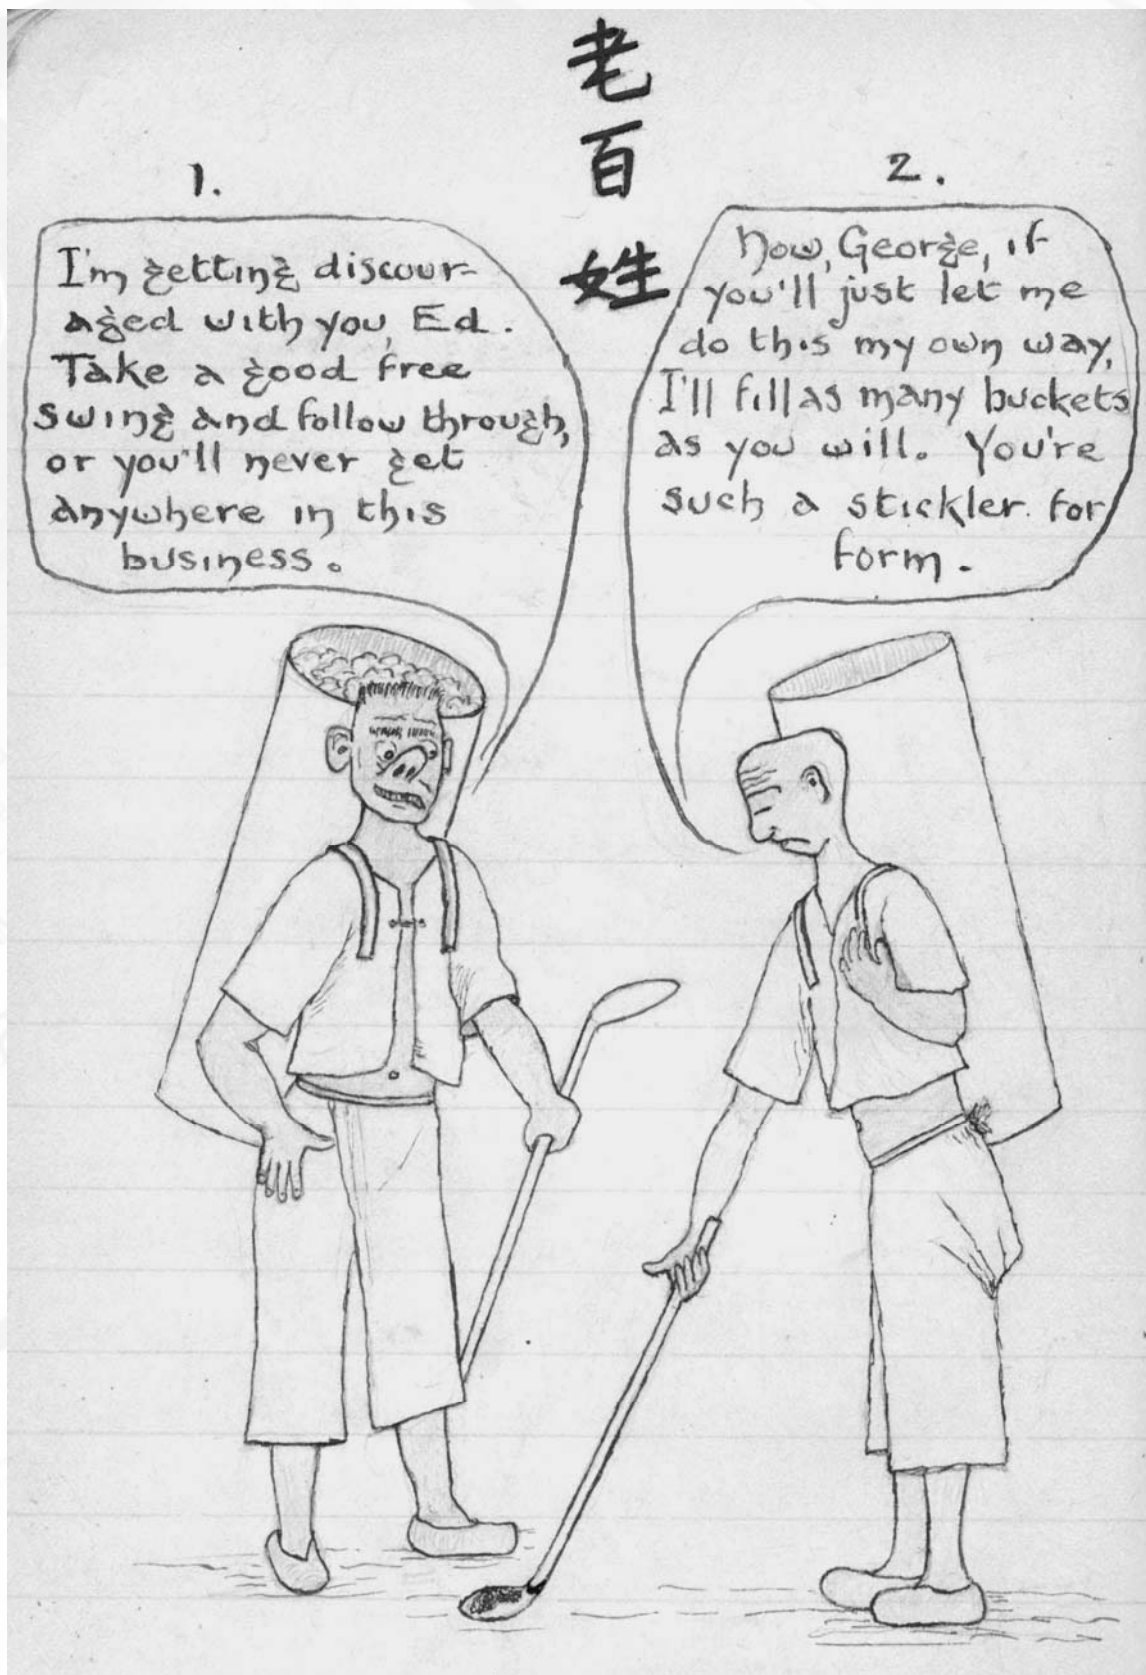 老
百
姓
1.
I'm getting discour-
aged with you, Ed.
Take a good free
swing and follow through,
or you'll never get
anywhere in this
business.
2.
Now, George, if
you'll just let me
do this my own way,
I'll fill as many buckets
as you will. You're
such a stickler for
form.